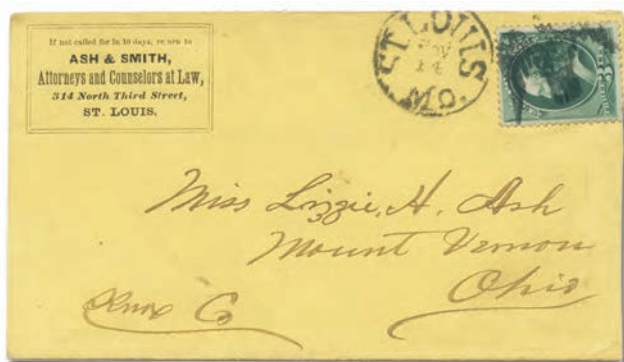 If not called for in 10 days, return to
ASH & SMITH,
Attorneys and Counselors at Law,
314 North Third Street,
ST. LOUIS.
ST. LOUIS
NOV
14
MO.
Miss Lizzie, H. Ash
Mount Vernon
Ohio
Knox Co